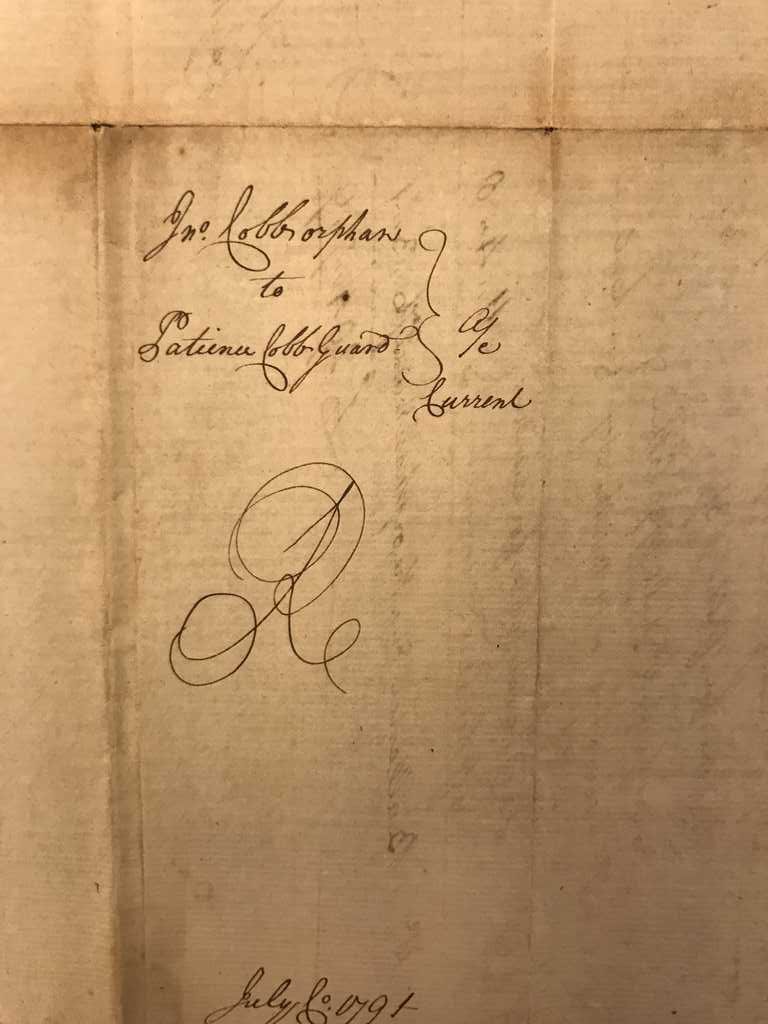 Jno. Cobbs orphan
to
Patience Cobb Guard.
a/c
Current
R
July Co. 1791